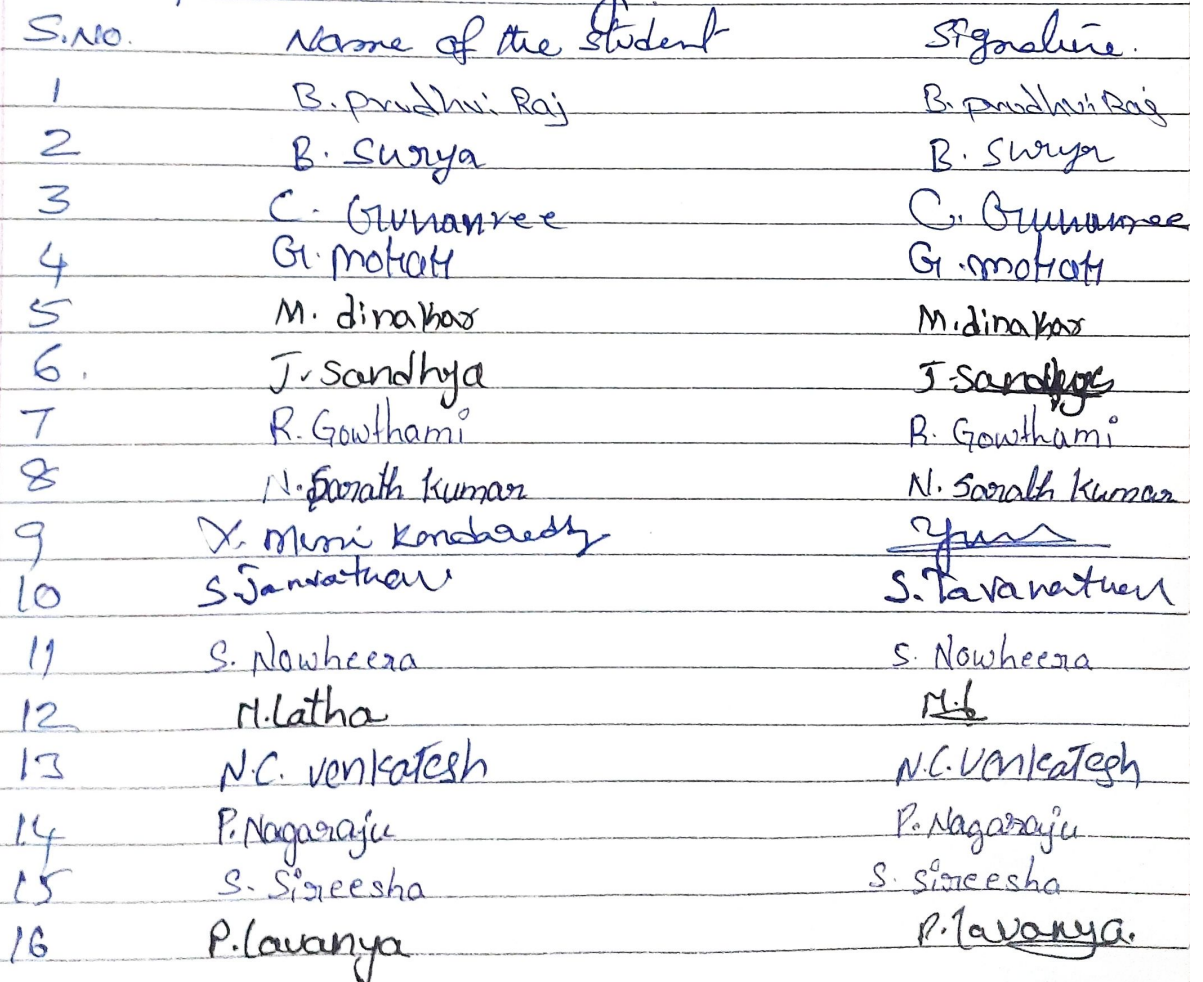 S.No. Name of the Student Signature.
1 B. prudhvi Raj B. prudhvi Raj
2 B. Surya B. Surya
3 C. Gunanree C. Gunanree
4 G. mohan G. mohan
5 M. dinakar M. dinakar
6. J. Sandhya J. Sandhya
7 R. Gowthami R. Gowthami
8 N. Sarath Kumar N. Sarath Kumar
9 Y. Muni Kondareddy
10 S. S. Tavanathen
11 S. Nowheera S. Nowheera
12 M. Latha M. L
13 N.C. venkatesh N.C. Venkatesh
14 P. Nagaraju P. Nagaraju
15 S. Sireesha S. Sireesha
16 P. Lavanya P. Lavanya.